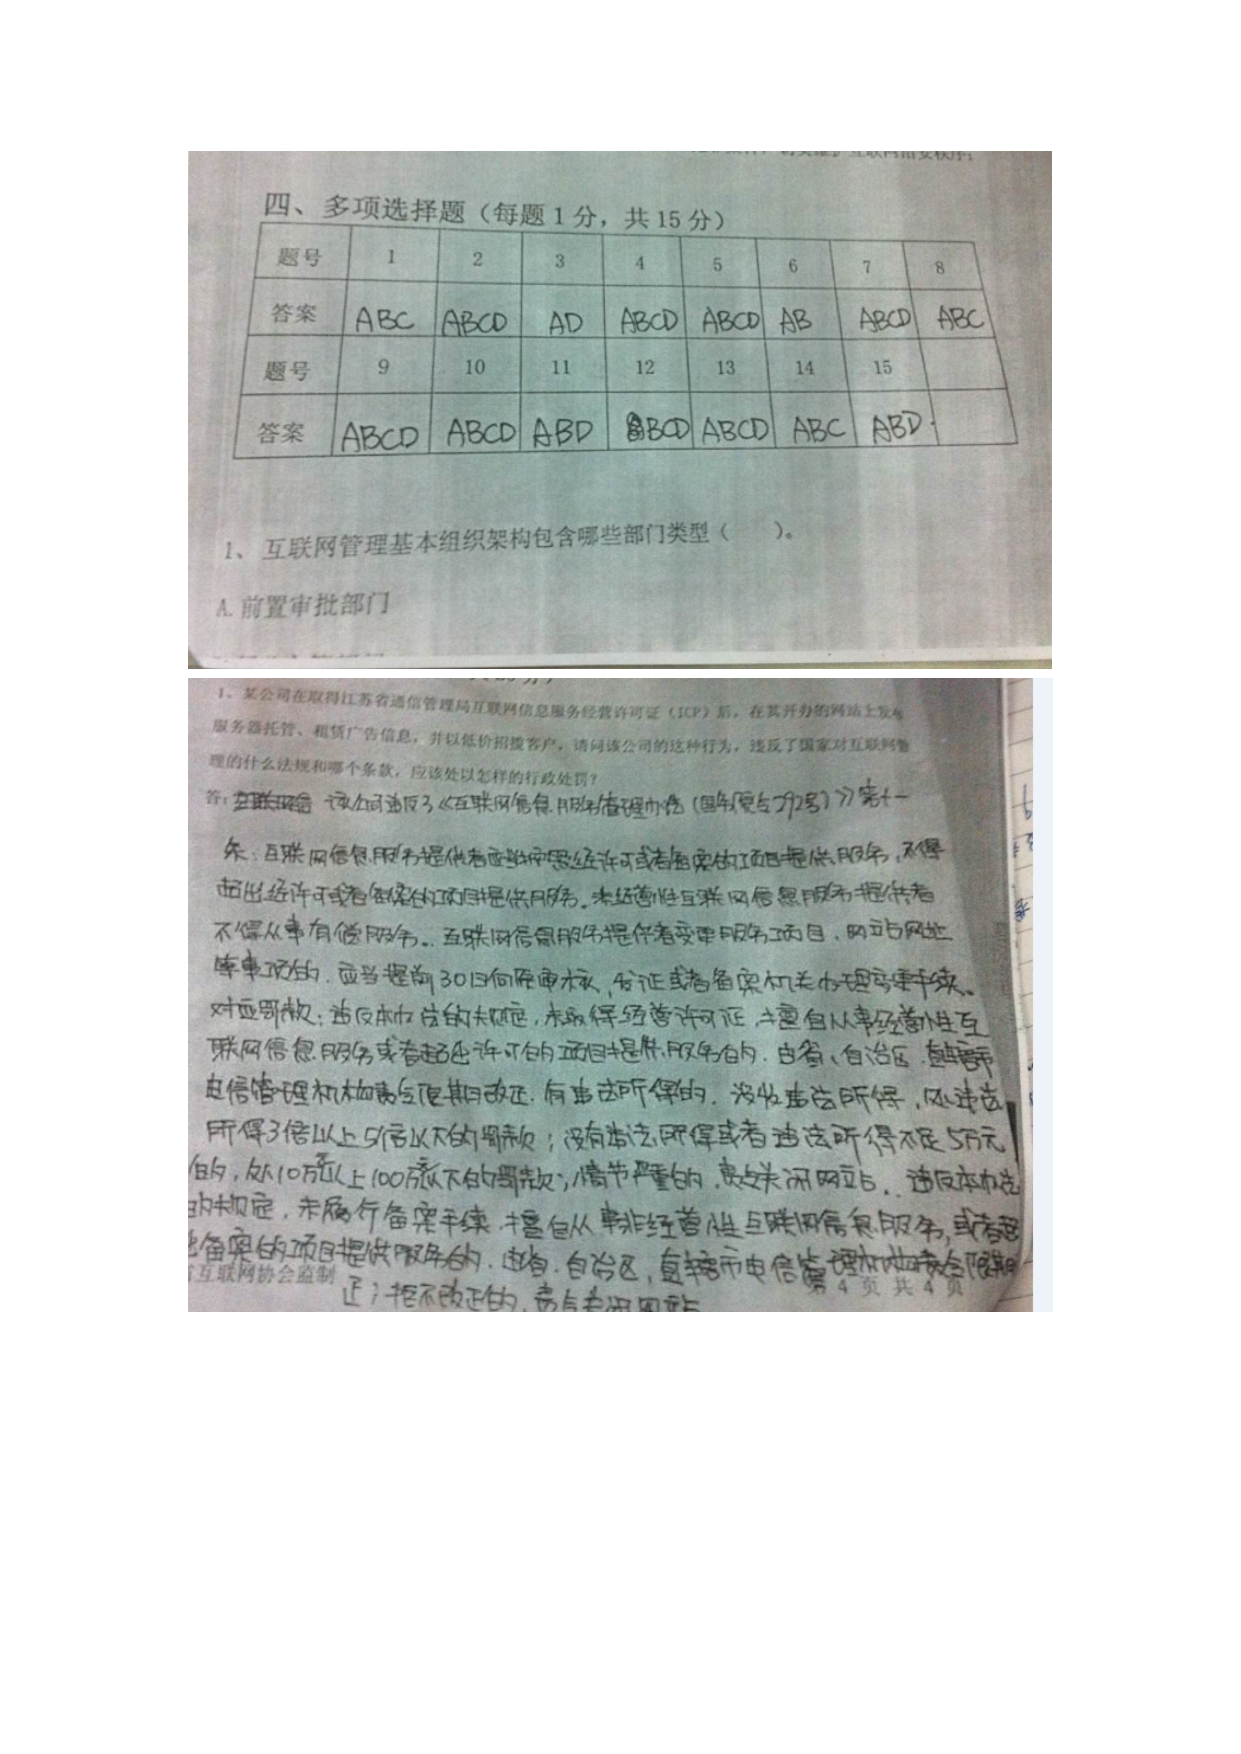 四、多项选择题（每题1分，共15分）
题号 1 2 3 4 5 6 7 8
答案 ABC ABCD AD ABCD ABCD AB ABCD ABC
题号 9 10 11 12 13 14 15
答案 ABCD ABCD ABD BCD ABCD ABC ABD
1、互联网管理基本组织架构包含哪些部门类型（ ）。
A.前置审批部门
1、某公司在取得江苏省通信管理局互联网信息服务经营许可证（ICP）后，在其开办的网站上发布
服务器托管、租赁广告信息，并以低价招揽客户，请问该公司的这种行为，违反了国家对互联网管
理的什么法规和哪个条款，应该处以怎样的行政处罚？
答： 该公司违反了《互联网信息服务管理办法（国务院令292号）》第十一
条：互联网信息服务提供者应当按照经许可或者备案的项目提供服务，不得
超出经许可或者备案的项目提供服务。非经营性互联网信息服务提供者
不得从事有偿服务。互联网信息服务提供者变更服务项目、网站网址
等事项的，应当提前30日向原审核、发证或者备案机关办理变更手续。
对应罚款：违反本办法的规定，未取得经营许可证，擅自从事经营性互
联网信息服务或者超出许可的项目提供服务的，由省、自治区、直辖市
电信管理机构责令限期改正，有违法所得的，没收违法所得，处违法
所得3倍以上5倍以下的罚款；没有违法所得或者违法所得不足5万元
的，处10万元以上100万元以下的罚款；情节严重的，责令关闭网站。违反本办法
的规定，未履行备案手续，擅自从事非经营性互联网信息服务，或者超
出备案的项目提供服务的，由省、自治区、直辖市电信管理机构责令限期
省互联网协会监制 第 4 页 共 4 页
正；拒不改正的，责令关闭网站